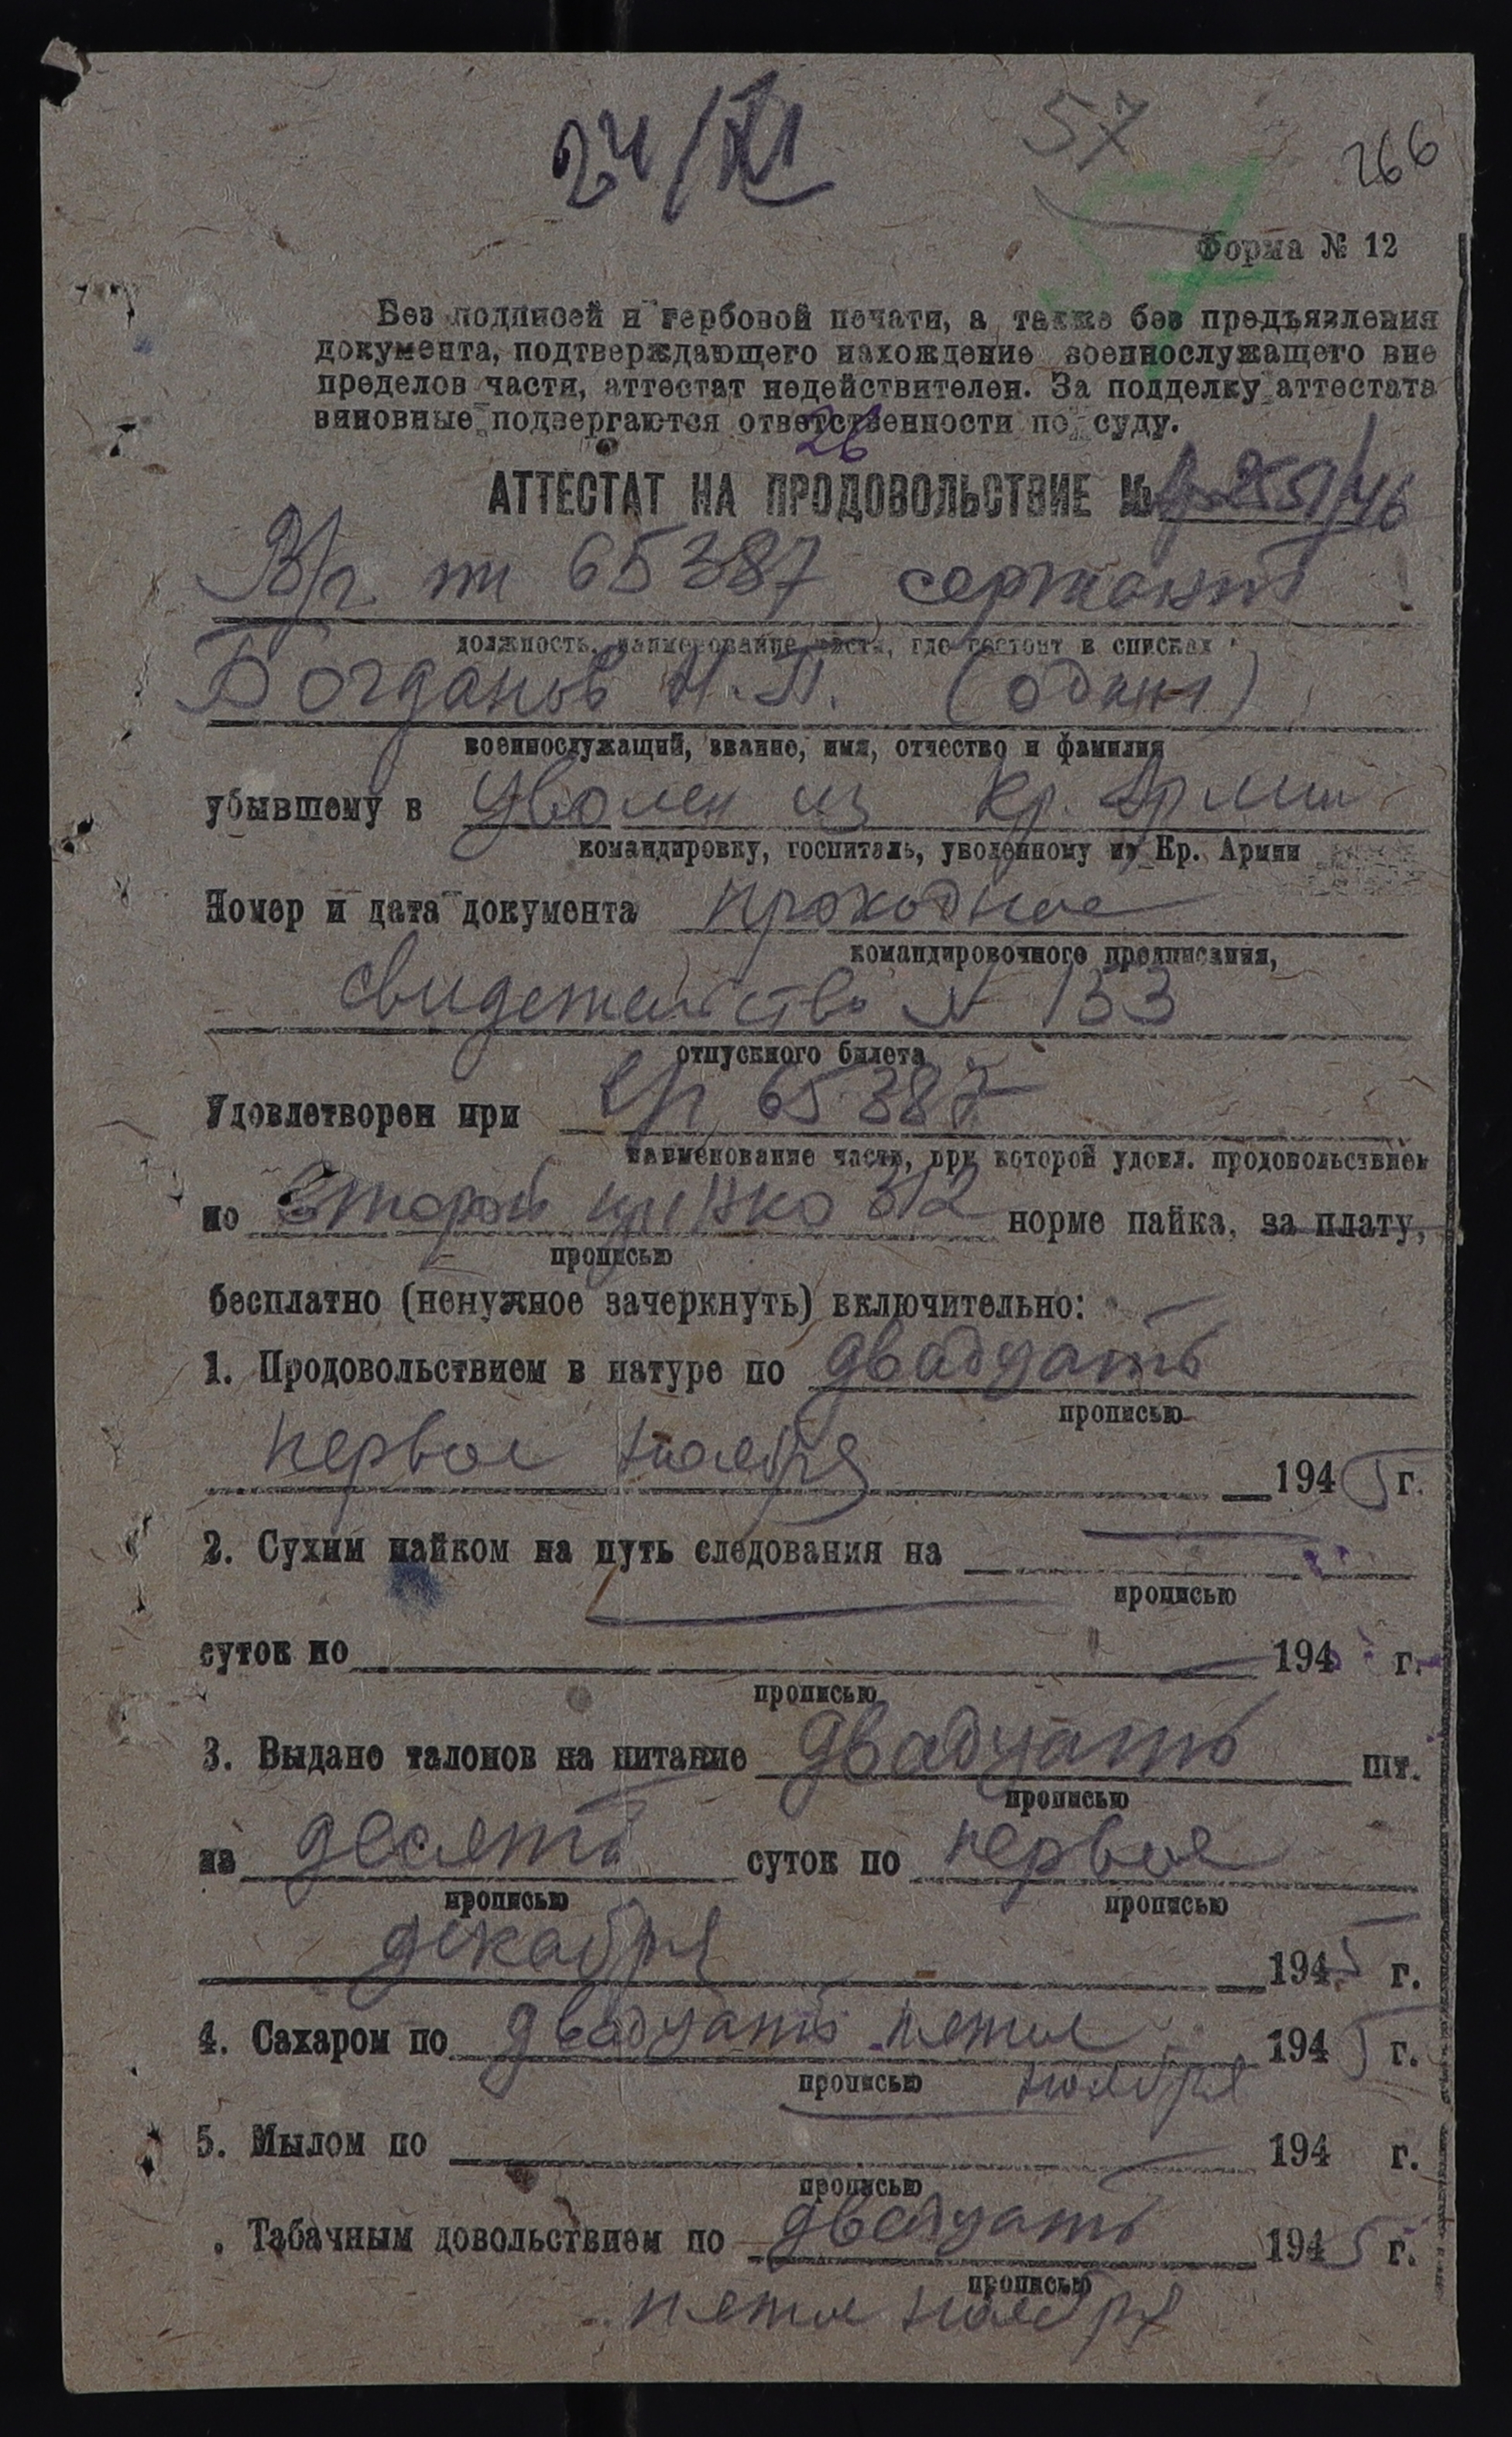 24/XI
57
266
57
Форма № 12
Без подписей и гербовой печати, а также без предъявления
документа, подтверждающего нахождение военнослужащего вне
пределов части, аттестат недействителен. За подделку аттестата
виновные подвергаются ответственности по суду.
26
АТТЕСТАТ НА ПРОДОВОЛЬСТВИЕ №
В/ч пп 65387 сержант
должность, наименование части, где состоит в списках
Богданов Н.П. (один)
военнослужащий, звание, имя, отчество и фамилия
убывшему в уволен из Кр. Армии
командировку, госпиталь, уволенному из Кр. Армии
Номер и дата документа проходное
командировочного предписания,
свидетельство N 153
отпускного билета
Удовлетворен при в/ч 65387
наименование части, при которой удовл. продовольствием
по второй пр НКО 312 норме пайка, за плату,
прописью
бесплатно (ненужное зачеркнуть) включительно:
1. Продовольствием в натуре по двадцать
прописью
первое ноября 1945 г.
2. Сухим пайком на путь следования на
прописью
суток по 194 г.
прописью
3. Выдано талонов на питание двадцать шт.
прописью
на десять суток по первое
прописью прописью
декабря 1945 г.
4. Сахаром по двадцать пятое 1945 г.
прописью ноября
5. Мылом по 194 г.
прописью
. Табачным довольствием по двадцать 1945 г.
прописью
пятое ноября